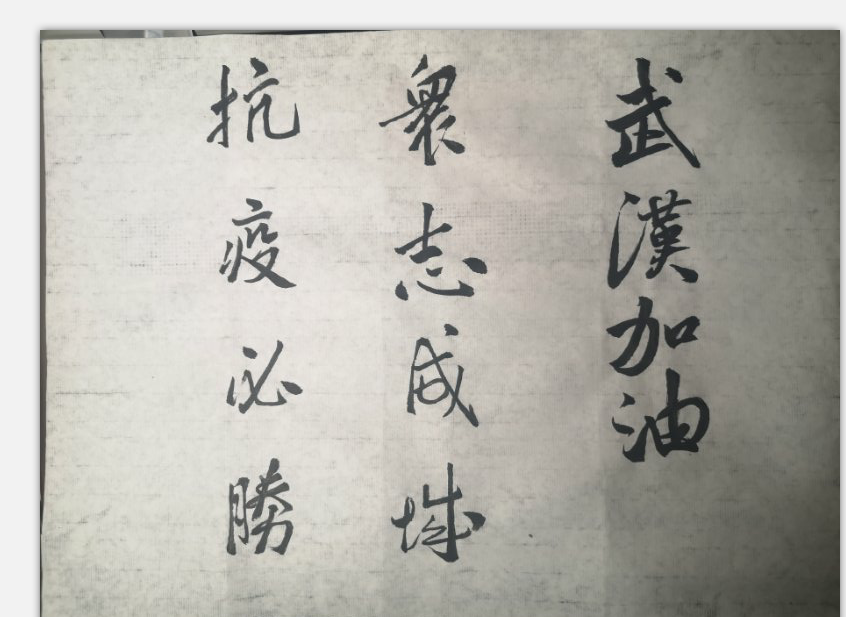 武漢加油
衆志成城
抗疫必勝